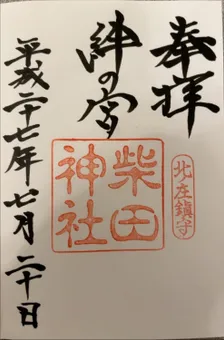 奉拝
北庄鎮守
絆の宮
柴田神社
平成二十七年七月二十日